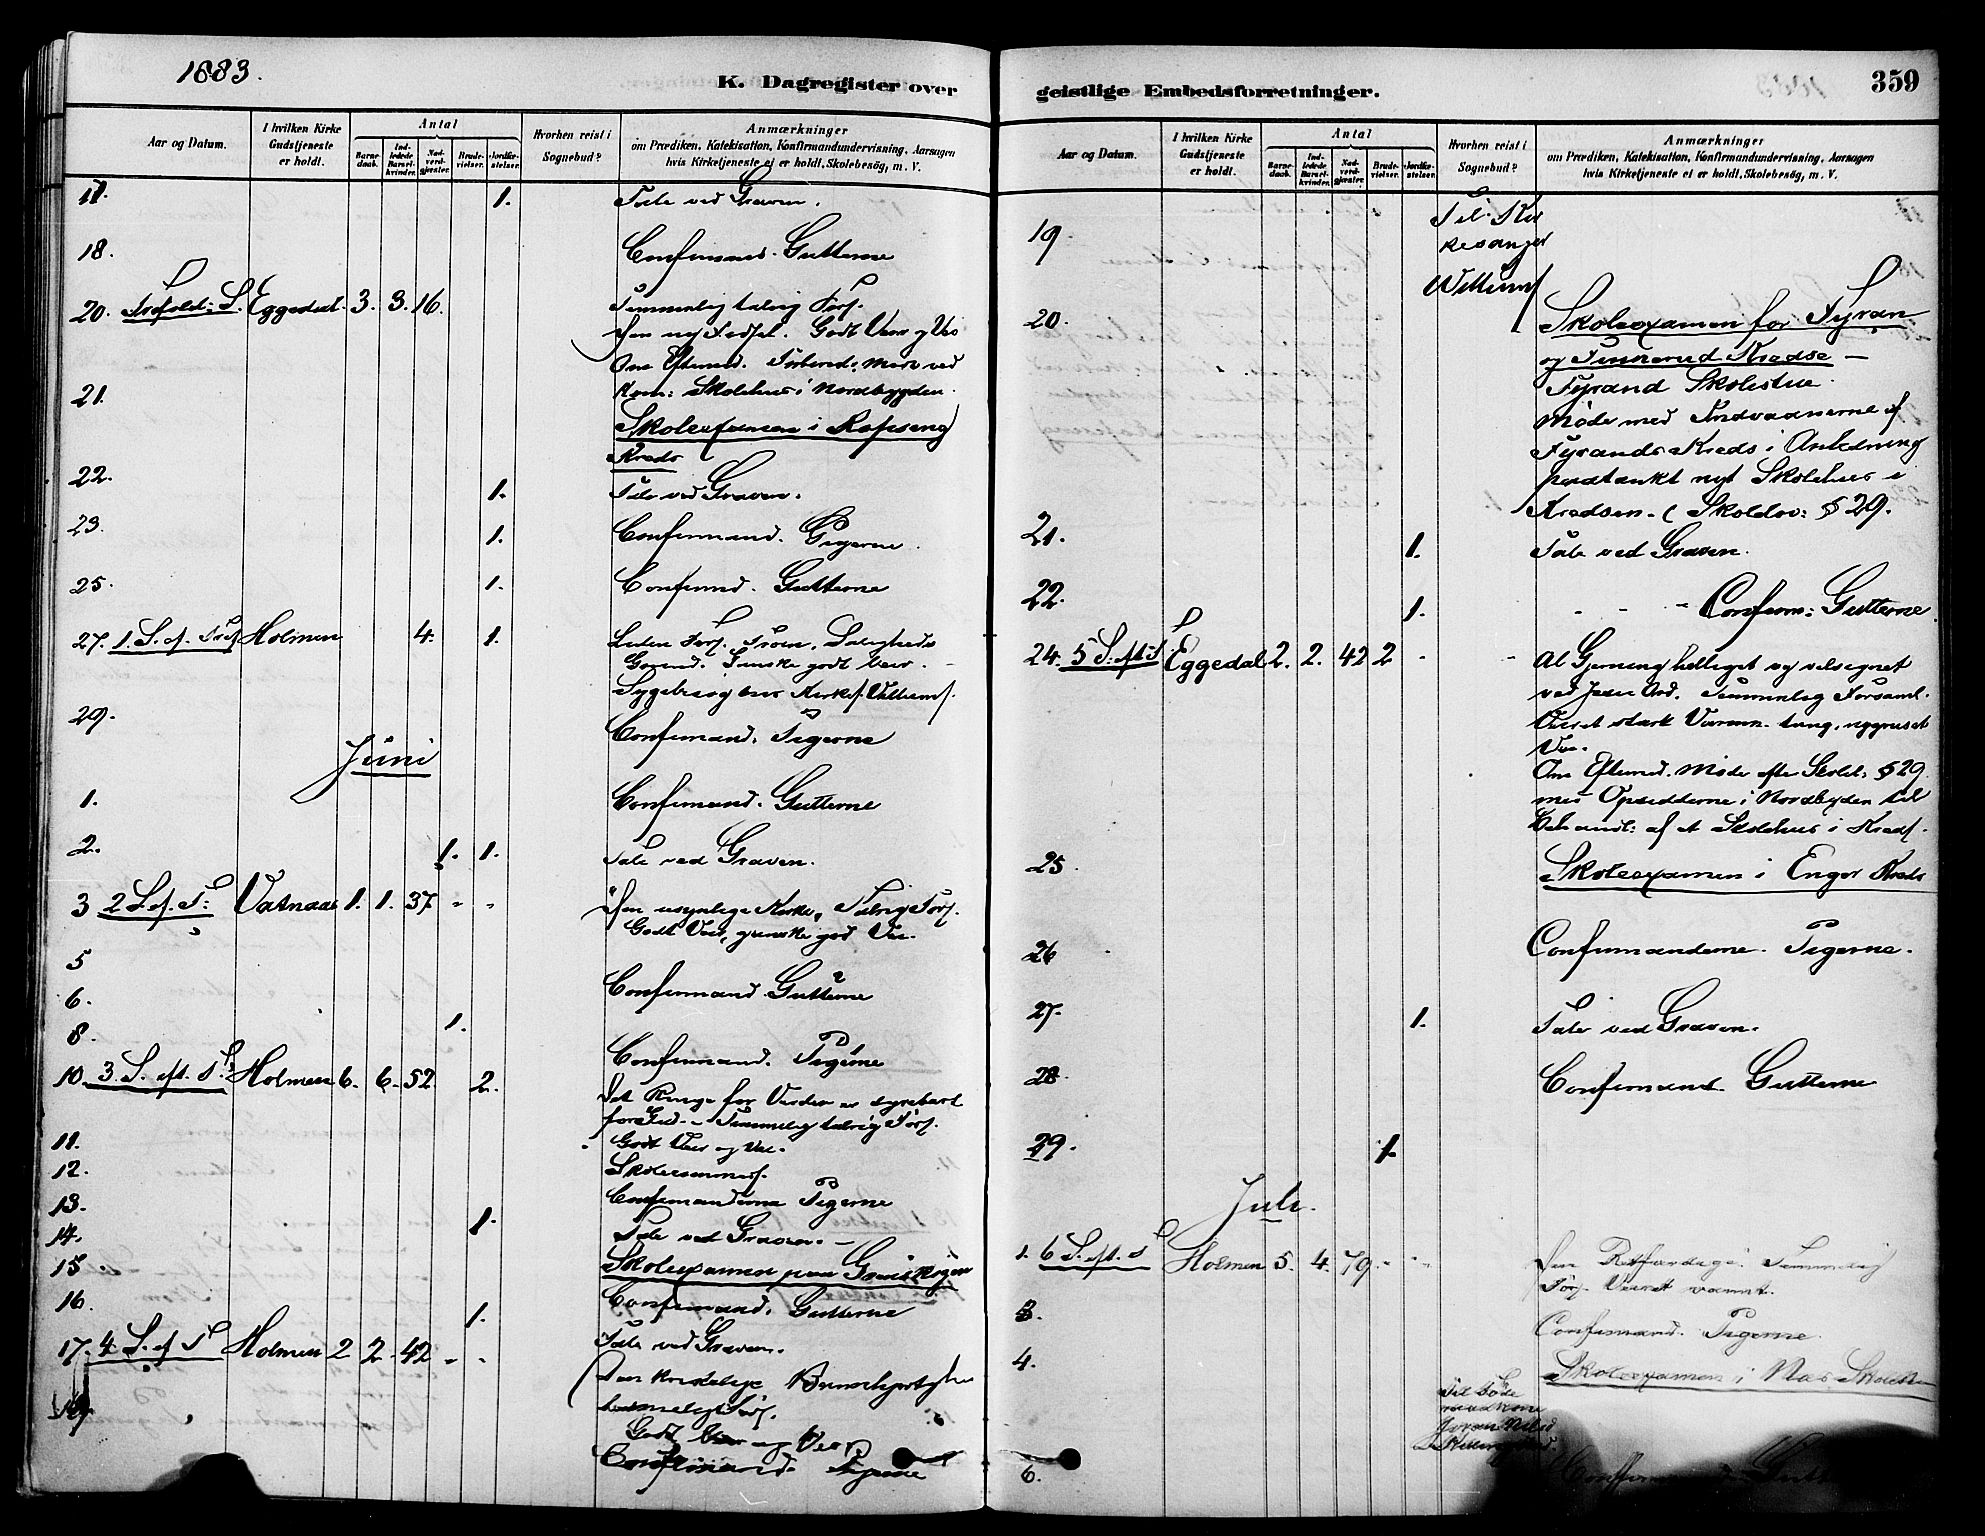 1883.
K. Dagregister over
Aar og Datum.
I hvilken Kirke Gudstjeneste er holdt.
Antal
Barnedaab.
Indledede Barselkvinder.
Nadverdgjæster.
Brudevielser.
Jordfæstelser.
Hvorhen reist i Sognebud?
Anmærkninger
om Prædiken, Katekisation, Konfirmandundervisning, Aarsagen
hvis Kirketjeneste ei er holdt, Skolebesøg, m. V.
17. 1. Tale ved Graven.
18. Confirmand. Gutterne
20. Trefold: S. Eggedal 3. 3. 16. Temmelig talrig Fors.
Den ny Fødsel. Godt Veir og Vei
Om Eftermd. Forbered. Møde ved
Kom: Skolehus i Nordbygden.
21. Skoleexamen i
Kreds
22. 1. Tale ved Graven.
23. 1. Confirmand. Pigerne.
25. 1. Confirmd. Gutterne
27. 1. S. ef. Tref Holmen 4. 1. Liden Fors. Troen, Saligheds
Grund. Ganske godt Veir.
Sygebesøg hos Kirkes. Villums.
29. Confirmand. Pigerne
Juni
1. Confirmand. Gutterne
2. 1. 1. Tale ved Graven.
3 2 S. ef. T: Vatnaas 1. 1. 37 - - Den usynlige Kirke. Talrig Fors.
Godt Veir, ganske god Vei.
5
6. Confirmand. Gutterne
8. 1.
Confirmand. Pigerne
10. 3. S. eft. T. Holmen 6. 6. 52. 2. Det Ringe for Verden er dyrebart
for Gud. - Temmelig talrig Fors.
11. Godt Veir og Vei.
12. Skolecommis.
13. Confirmanderne Pigerne
14. 1. Tale ved Graven. -
15. Skoleexamen paa
16. 1. Confirmand. Gutterne
17. 4. S. ef T Holmen 2 2 42 - - Tale ved Graven.
Den kristelige
Fors.
Godt Veir og Vei.
19. Confirmand. Pigerne
geistlige Embedsforretninger.
359
Aar og Datum.
I hvilken Kirke Gudstjeneste er holdt.
Antal
Barnedaab.
Indledede Barselkvinder.
Nadverdgjæster.
Brudevielser.
Jordfæstelser.
Hvorhen reist i Sognebud?
Anmærkninger
om Prædiken, Katekisation, Konfirmandundervisning, Aarsagen
hvis Kirketjeneste ei er holdt, Skolebesøg, m. V.
19. Til Kir
kesanger
Willums
20. Skoleexamen for Fyran
og Kredse -
Fyrand Skolestue.
Møde med Indvaanerne af
Fyrands Kreds i Anledning
paatænkt nyt Skolehus i
Kredsen. (Skolelov: § 29.
21. 1. Tale ved Graven.
22. 1. - - - Confirm: Gutterne
24. 5 S. eft T Eggedal 2. 2. 42 2 - - Al Gjerning helliget og velsignet
ved Jesu Ord. Temmelig Forsaml.
Veiret stærk Varme. tung, nygruset
Vei.
Om Eftermd. Møde efter Skolel: § 29
med Opsidderne i Nordbyden til
Behandl: af et Skolehus i Kreds.
25 Skoleexamen i Enger Kreds
26 Confirmanderne. Pigerne.
27. 1. Tale ved Graven.
28. Confirmand. Gutterne
29. 1.
Juli.
1. 6 S. eft. T Holmen 5. 4. 79. - - Den Retfærdige. Temmelig
Fors. Veiret varmt.
3. Confirmand. Pigerne.
4. Skoleexamen i Næs
6.